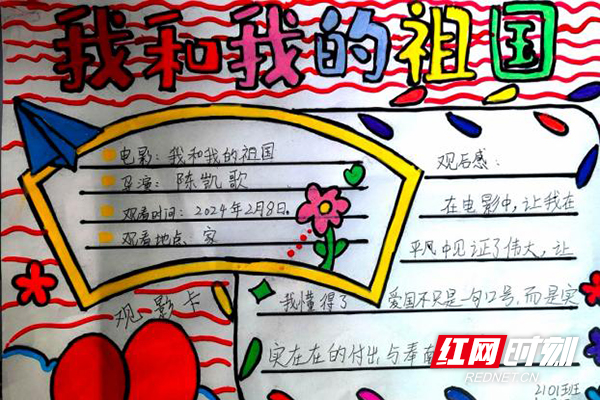 我和我的祖国
电影：我和我的祖国
导演：陈凯歌
观看时间：2024年2月8日。
观看地点、家
观影卡
观后感：
在电影中，让我在
平凡中见证了伟大，让
我懂得了 爱国不只是一句口号，而是实
实在在的付出与奉
红网时刻
REDNET.CN
2101班